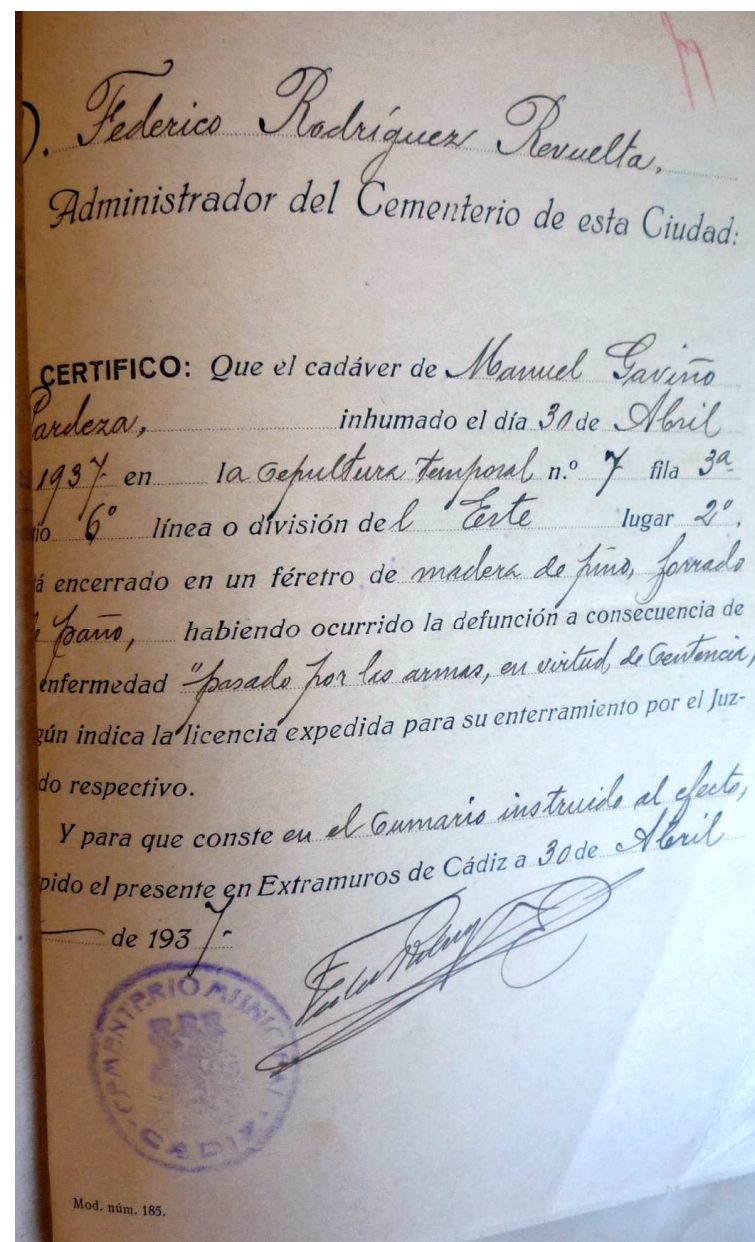 D. Federico Rodríguez Revuelta,
Administrador del Cementerio de esta Ciudad:
CERTIFICO: Que el cadáver de Manuel Gaviño
Pardeza, inhumado el día 30 de Abril
1937 en la Sepultura temporal n.º 7 fila 3ª
io 6º línea o división del Este lugar 2º,
á encerrado en un féretro de madera de pino, forrado
de paño, habiendo ocurrido la defunción a consecuencia de
enfermedad "pasado por las armas, en virtud de Sentencia,
gún indica la licencia expedida para su enterramiento por el Juz-
do respectivo.
Y para que conste en el Sumario instruido al efecto,
pido el presente en Extramuros de Cádiz a 30 de Abril
de 1937.-
CEMENTERIO MUNICIPAL
CADIZ
Mod. núm. 185.